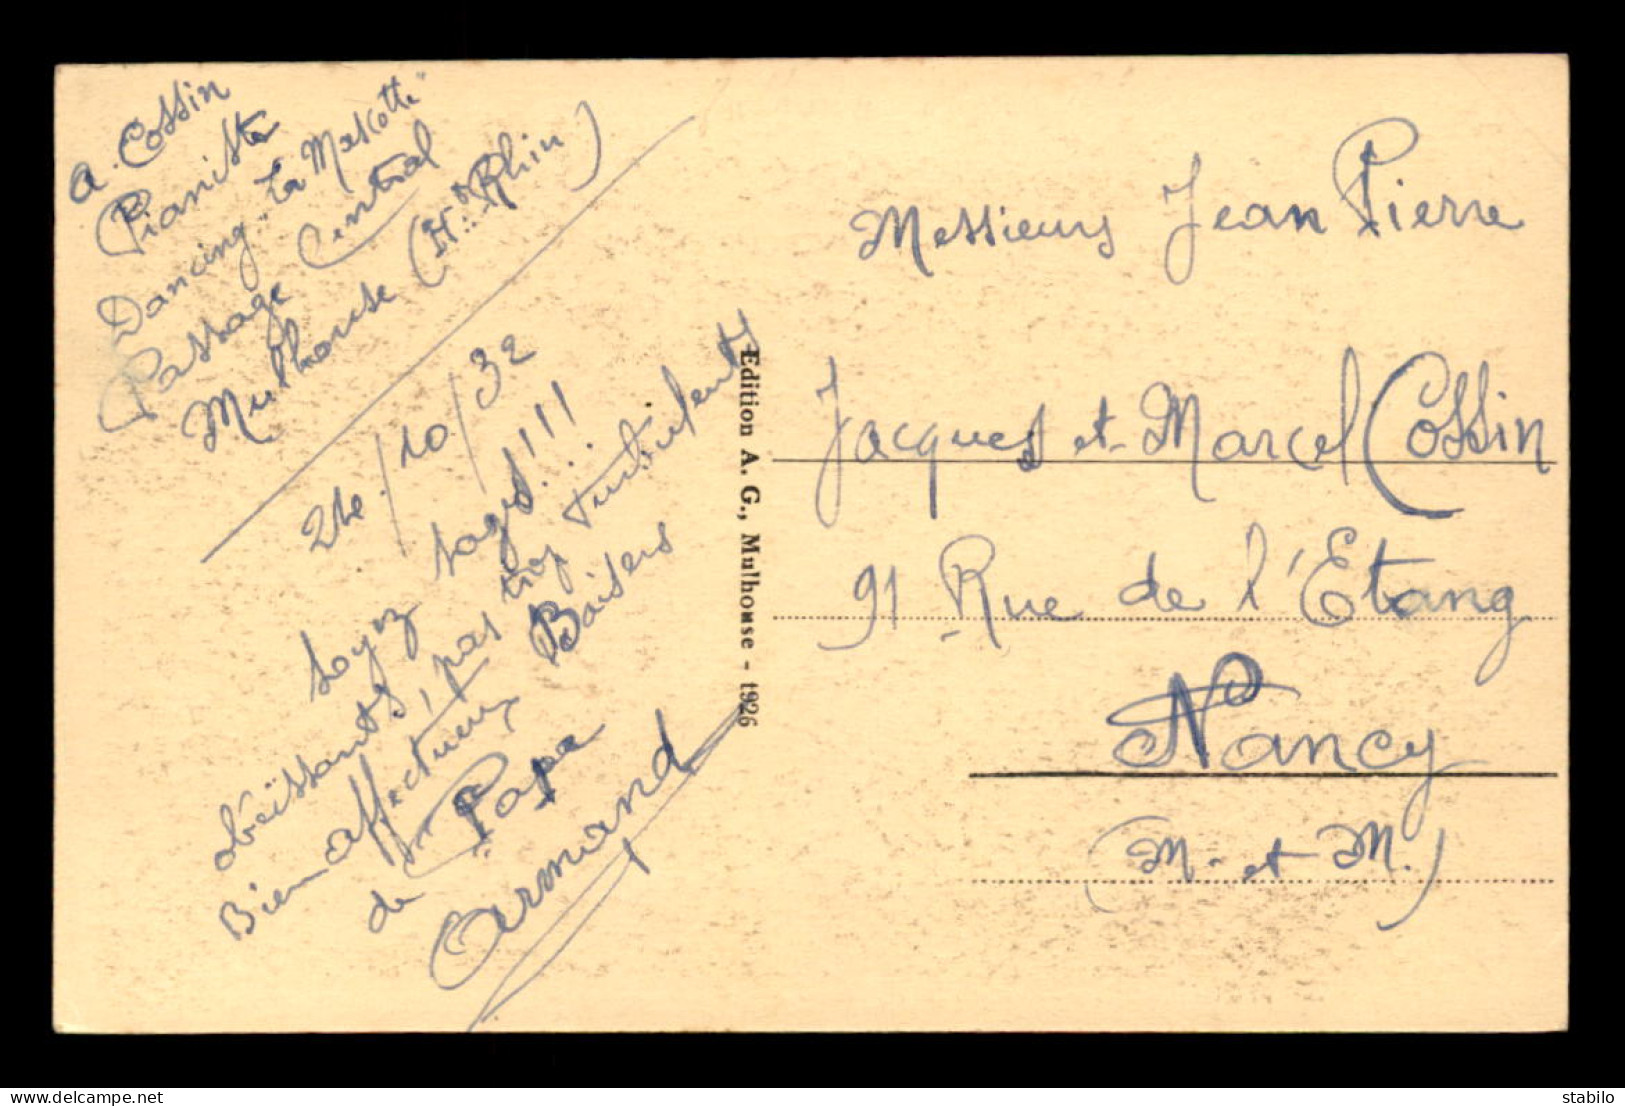 A. Cossin
Pianiste
Dancing "La Mascotte"
Passage Central
Mulhouse (Ht Rhin)
24/10/32
Soyez sages!!!
obéissants, pas trop turbulents
Bien affectueux Baisers
de Papa
Armand
Edition A. G., Mulhouse - 1926
Messieurs Jean Pierre
Jacques et Marcel Cossin
91 Rue de l'Etang
Nancy
(M. et M.)
delcampe.net
stabilo